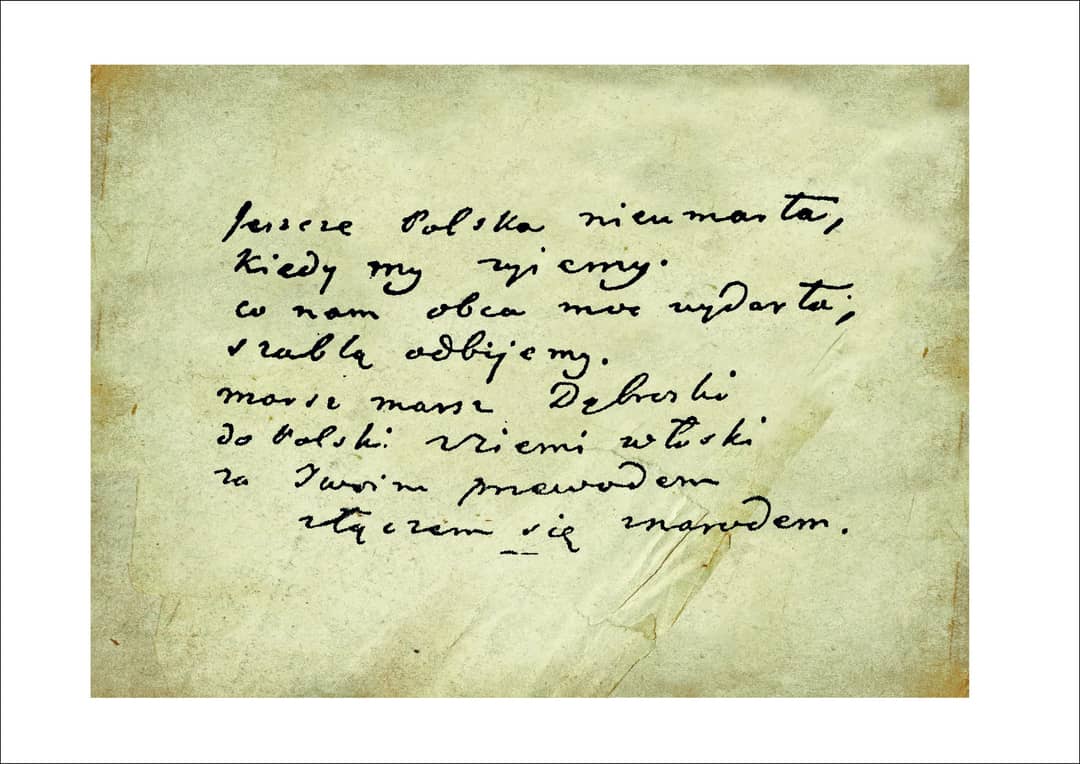 Jeszcze Polska nieumarła,
kiedy my żyjemy.
co nam obca moc wydarła,
szablą odbijemy.
marsz marsz Dąbroski
do Polski zziemi włoski
za Twoim przewodem
złączem się znarodem.